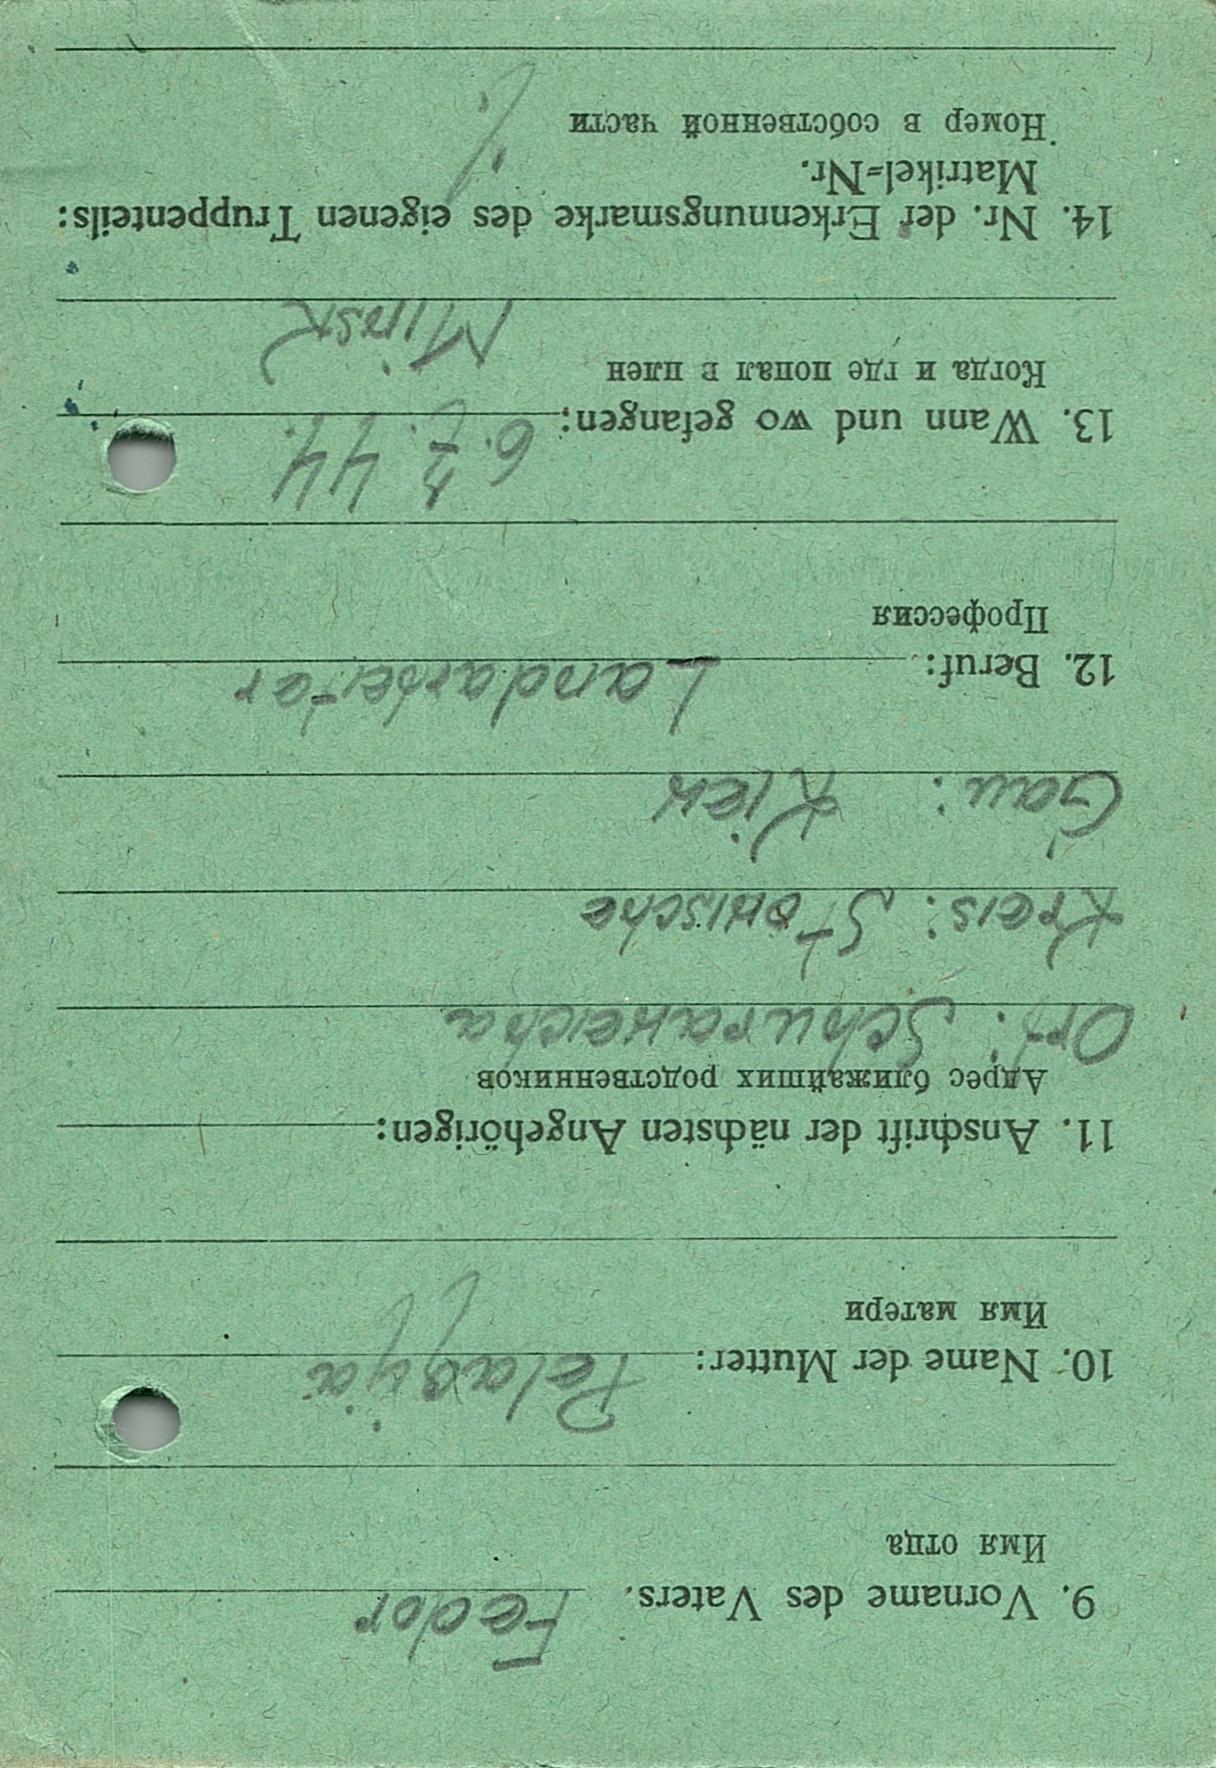 9. Vorname des Vaters. Fedor
Имя отца
10. Name der Mutter: Pelagija
Имя матери
11. Anschrift der nächsten Angehörigen:
Адрес ближайших родственников
Ort: Schuraweicha
Kreis: Stowische
Gau: Kiew
12. Beruf: Landarbeiter
Профессия
13. Wann und wo gefangen: 6. 7. 44.
Когда и где попал в плен
Minsk
14. Nr. der Erkennungsmarke des eigenen Truppenteils:
Matrikel-Nr.
Номер в собственной части